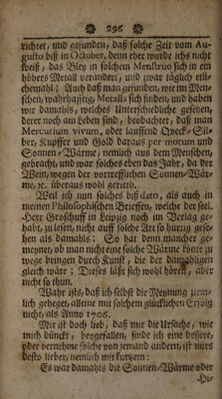 296
richtet, und gefunden, daß solche Zeit vom Au-
gusto biß in October, denn eher wurde ich nicht
weiß, das Bley in solchem Menstruo sich in ein
höhers Metall verändert, und zwar täglich etli-
chemahl; Auch daß man gefunden, wie im Men-
schen, wahrhafftig, Metalla sich finden, und haben
wir damahls, welches Unterschiedliche gesehen,
derer noch am Leben sind, beobachtet, daß man
Mercurium vivum, oder lauffend Qveck-Sil-
ber, Kupffer und Gold daraus per motum und
Sonnen-Wärme, nemlich aus dem Menschen,
gebracht, und war solches eben das Jahr, da der
Wein, wegen der vortrefflichen Sonnen-Wär-
me, ꝛc. überaus wohl gerieth.
Weil ich nun solches biß dato, als auch in
meiner Philosophischen Brieffen, welche der seel.
Herr Groschuff in Leipzig noch im Verlag ge-
habt, zu lesen, nicht auff solche Art so hurtig gese-
hen als damahls; So hat denn mancher ge-
meynet, ob man nicht eine solche Wärme könte zu
wege bringen durch Kunst, die der damahligen
gleich wäre; Dieses läßt sich wohl hören, aber
nicht so thun.
Wahr ists, daß ich selbst die Meynung ziem-
lich geheget, alleine mit solchem glücklichen Erfolg
nicht, als Anno 1706.
Mir ist doch lieb, daß mir die Ursache, wie
mich dünckt, beygefallen, finde ich eine bessere,
oder vernehme solche von jemand anders, ist mirs
desto lieber, nemlich mit kurtzem:
Es war damahls die Sonnen-Wärme oder
Hi-